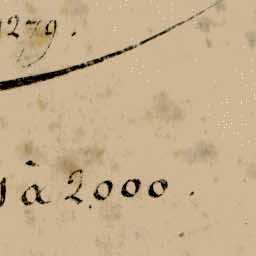 1279.
à 2000.